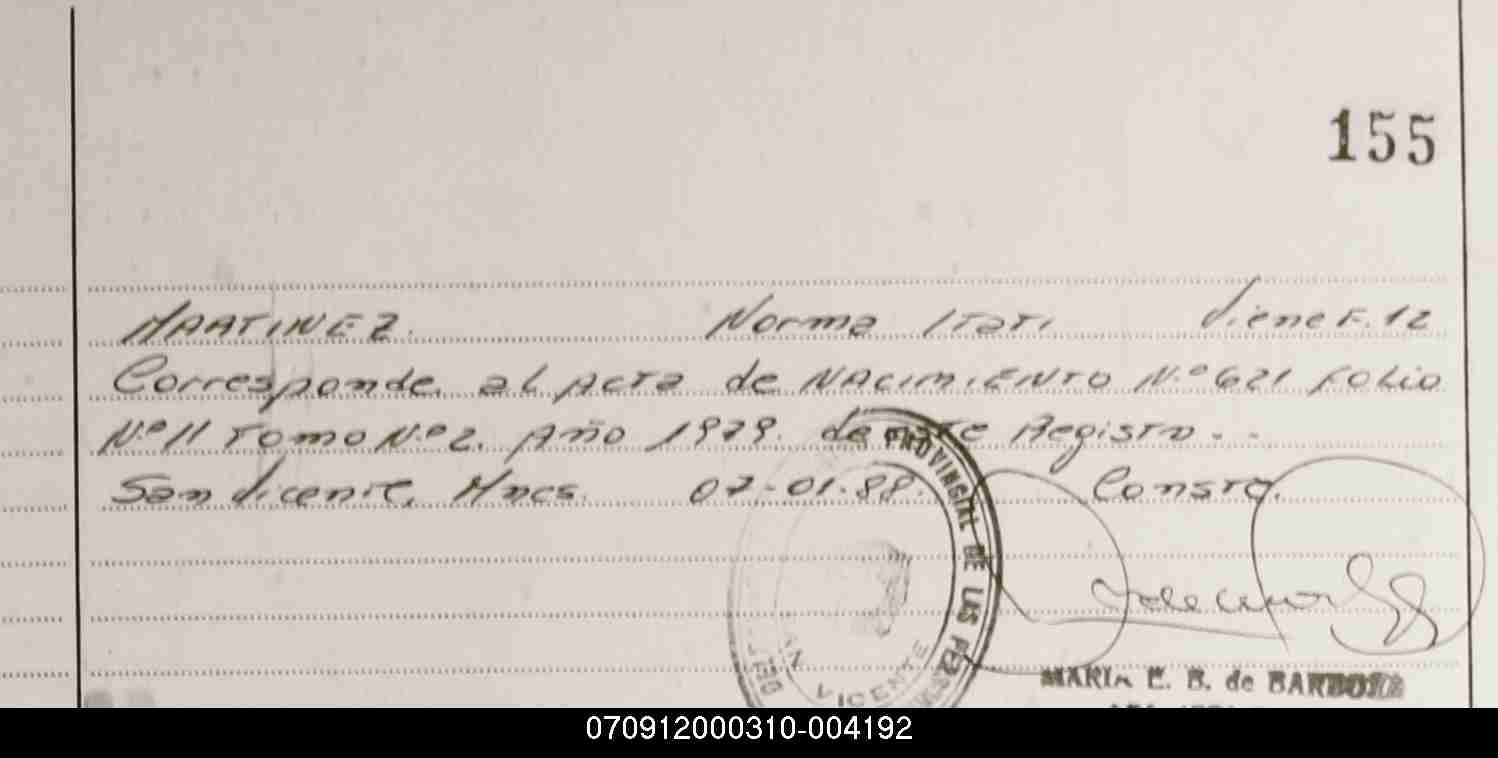 155
MARTINEZ. Norma Itati Viene F. 12
Corresponde al Acta de NACIMIENTO N.º 621 FOLIO
Nº 11 TOMO N.º 2. Año 1979. de este Registro. -
San Vicente, Mnes. 07-01-88. Conste.
PROVINCIAL DE LAS PERS
DEL
VICENTE
MARIA E. B. de BARBOZA
070912000310-004192